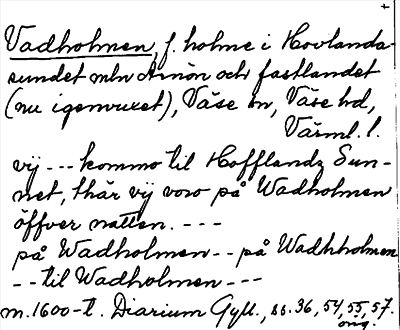 +
Vadholmen, f. holme i Hovlanda-
sundet mln Arnön och fastlandet
(nu igenvuxet), Väse sn, Väse hd,
Värml. l.
vij --- kommo til Hofflandz Sun-
net, thär vij voro på Wadholmen
öffver natten. ---
på Wadholmen -- på Wadhholmen
-- til Wadholmen ---
m. 1600-t. Diarium Gyll., ss. 36, 54, 55, 57.
orig.